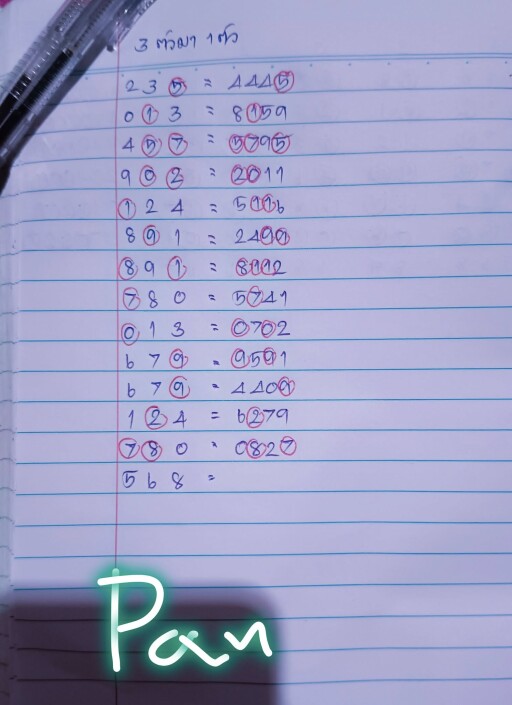 3 ตัวมา 1 ตัว
2 3 5 = 4445
0 1 3 = 8159
4 5 7 = 5795
9 0 2 = 2011
1 2 4 = 5116
8 9 1 = 2499
8 9 1 = 8112
7 8 0 = 5741
0 1 3 = 0702
6 7 9 = 9591
6 7 9 = 4409
1 2 4 = 6279
7 8 0 = 0827
5 6 8 =
Pan